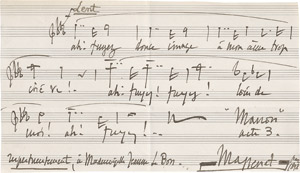 Lent
ah! fuyez douce image à mon âme trop
chère! ah! fuyez! fuyez! loin de
moi! ah! fuyez! "Manon"
acte 3.
respectueusement, à Mademoiselle L. Bon.
Massenet